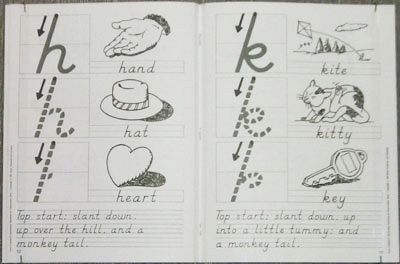 h
hand
hat
heart
Top start; slant down,
up over the hill, and a
monkey tail.
k
kite
kitty
key
Top start; slant down, up
into a little tummy; and
a monkey tail.